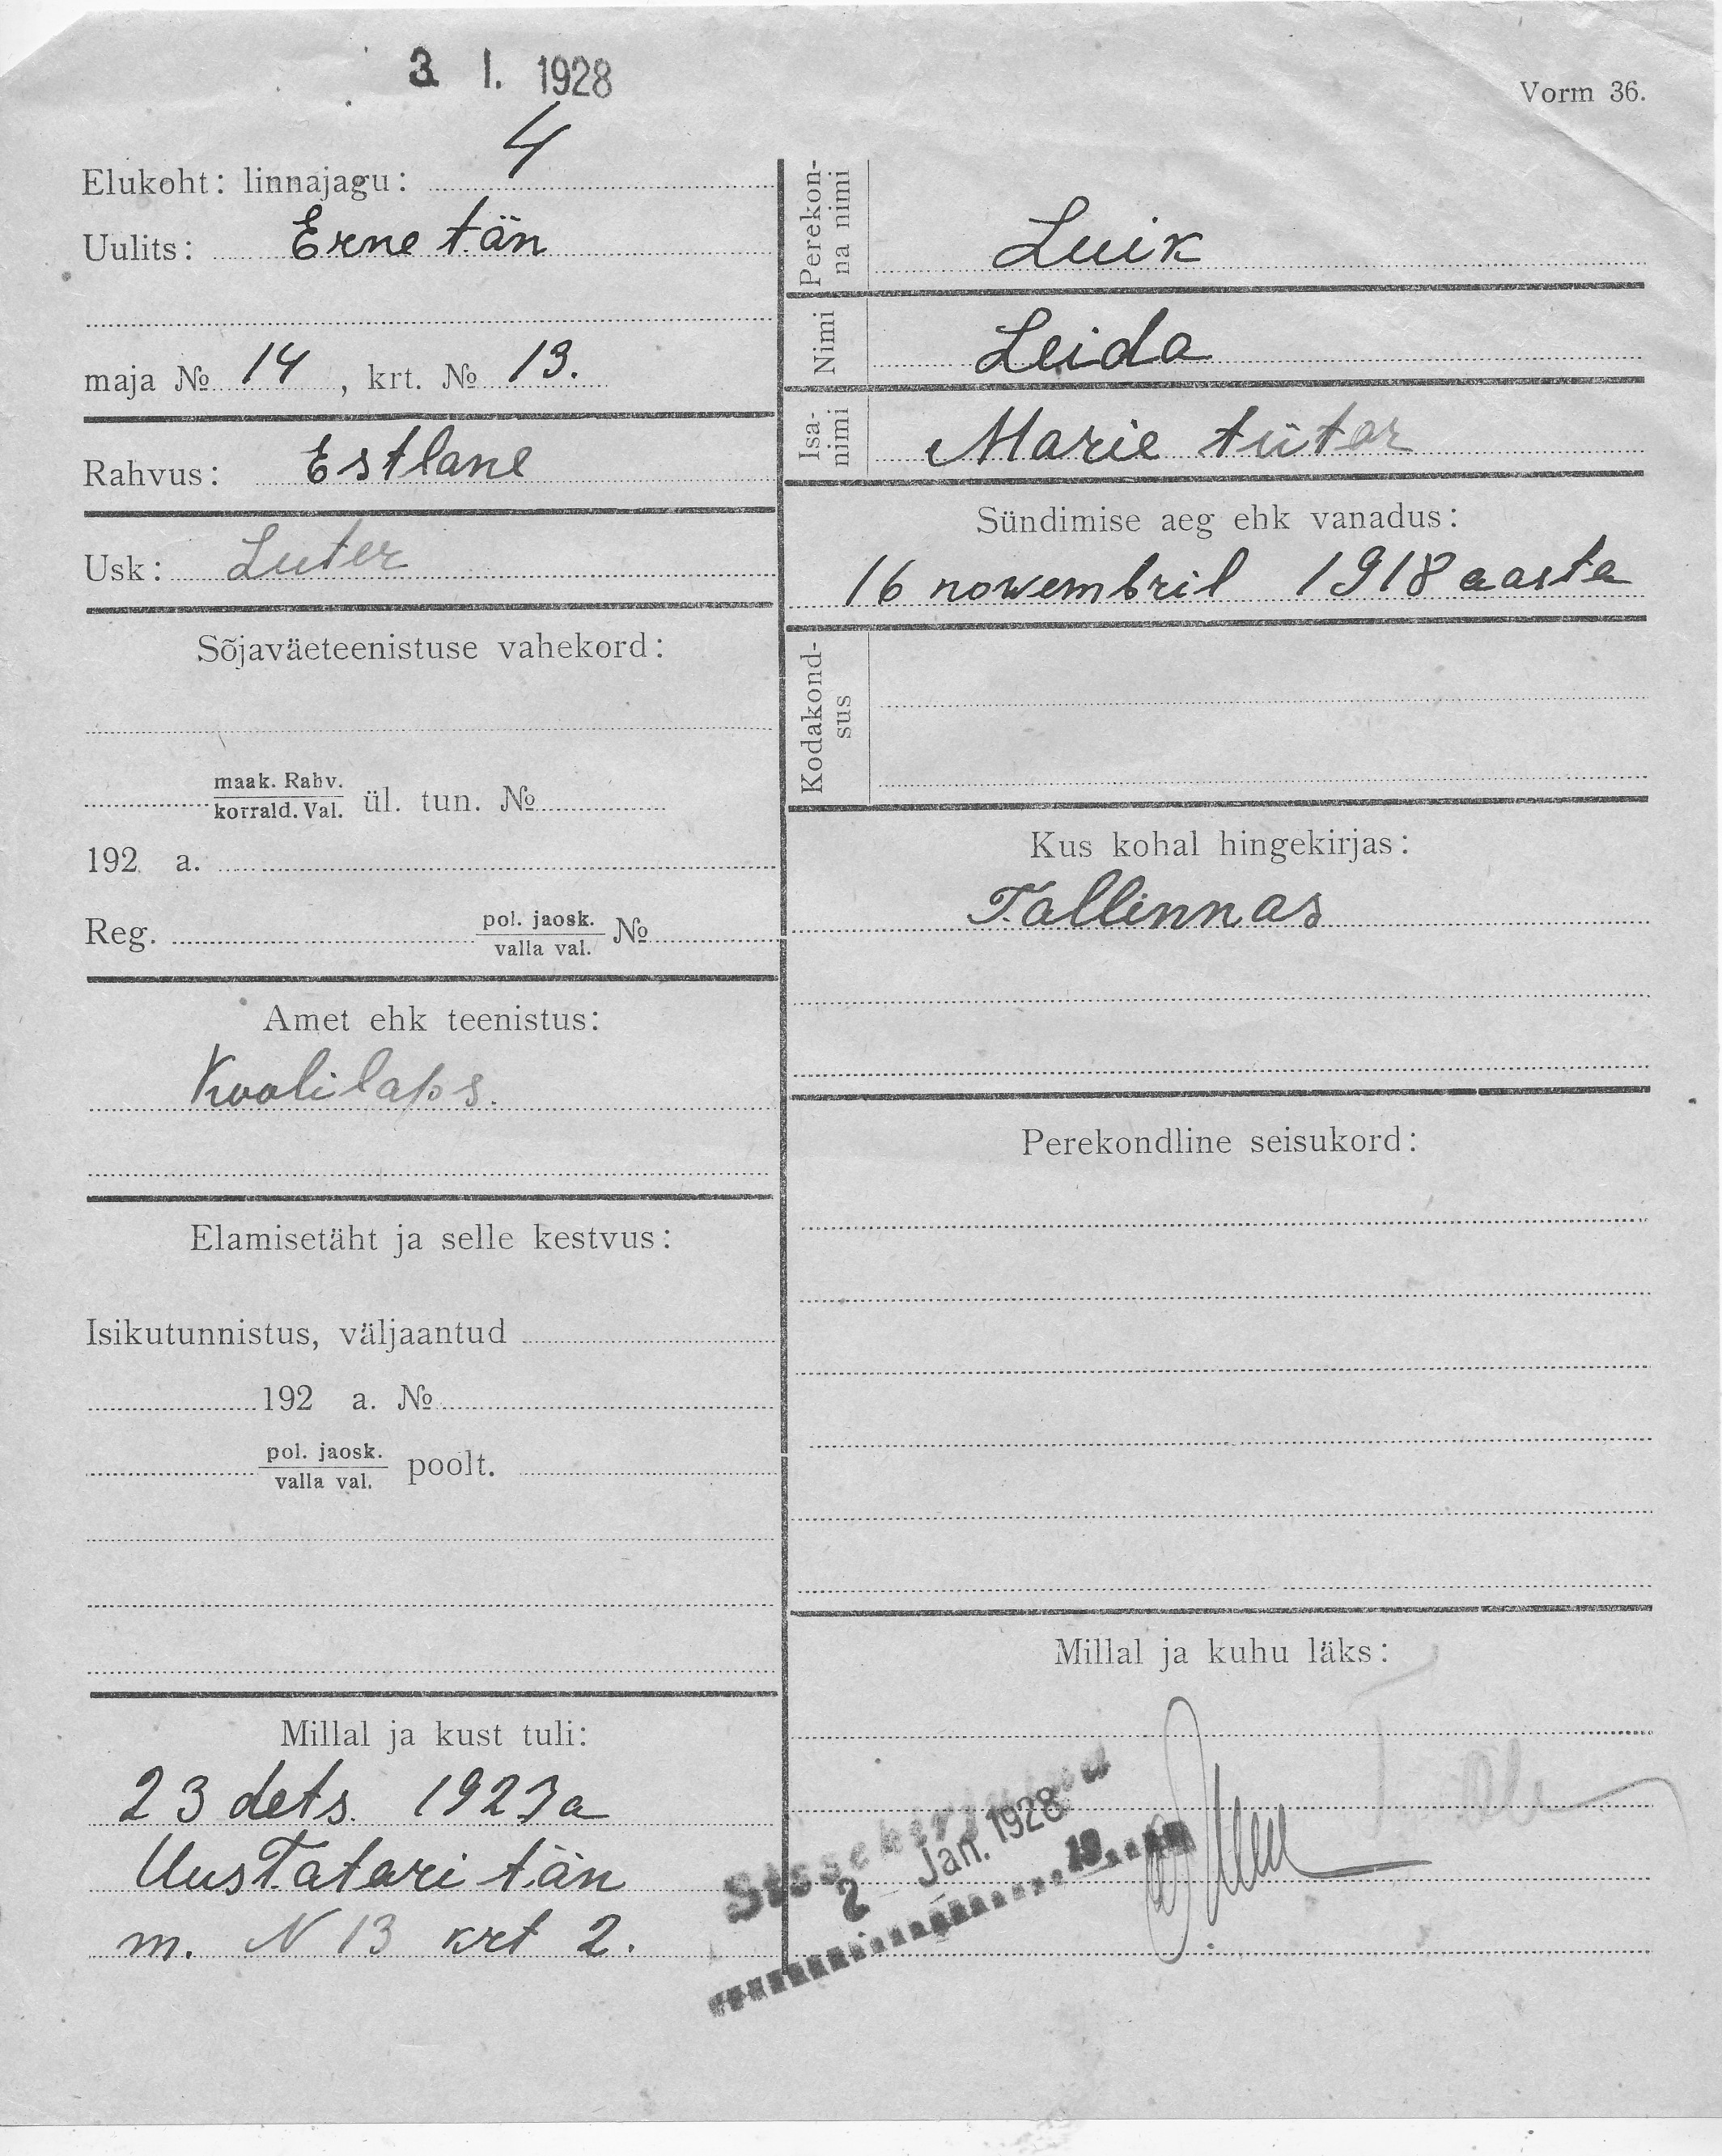 3. I. 1928
Vorm 36.
Elukoht: linnajagu: 4
Uulits: Erne tän
maja № 14, krt. № 13.
Rahvus: Estlane
Usk: Luter
Sõjaväeteenistuse vahekord:
maak. Rahv.
korrald. Val. ül. tun. №
192 a.
Reg. pol. jaosk. №
valla val.
Amet ehk teenistus:
Koolilaps.
Elamisetäht ja selle kestvus:
Isikutunnistus, väljaantud
192 a. №
pol. jaosk. poolt.
valla val.
Millal ja kust tuli:
23 dets. 1927a
Uus Tatari tän
m. N 13 krt 2.
Perekon-
na nimi Luik
Nimi Leida
Isa-
nimi Marie tütar
Sündimise aeg ehk vanadus:
16 nowembril 1918 aasta
Kodakond-
sus
Kus kohal hingekirjas:
Tallinnas
Perekondline seisukord:
Millal ja kuhu läks:
Sissekirjutud
2 Jan. 1928
19